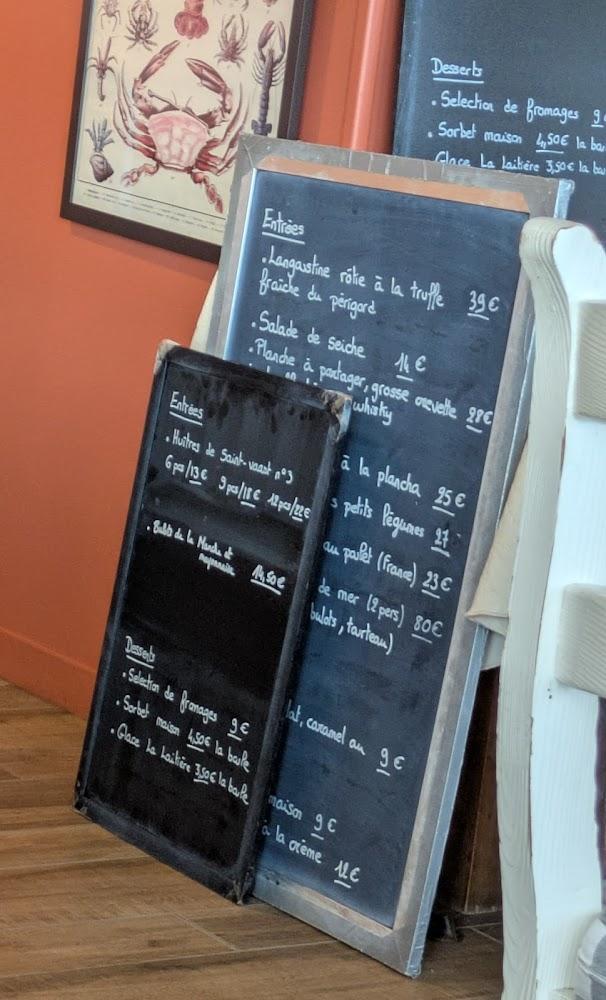 Desserts
. Selection de fromages 9
. Sorbet maison 4,50€ la
Glace La Laitière 3,50€ la
Entrées
. Langoustine rôtie à la truffe
fraîche du périgord 39€
. Salade de seiche 14€
. Planche à partager, grosse crevette 28€
whisky
à la plancha 25€
petits légumes 27
au poulet (France) 23€
de mer (2 pers) 80€
bulots, tourteau)
caramel au 9€
maison 9€
à la crème 12€
Entrées
. Huîtres de Saint-vaast n°3
6 pcs/13€ 9 pcs/18€ 12 pcs/22€
. Bulots de la Manche et
mayonnaise 14,50€
Desserts
. Selection de fromages 9€
. Sorbet maison 4,50€ la boule
. Glace La Laitière 3,50€ la boule